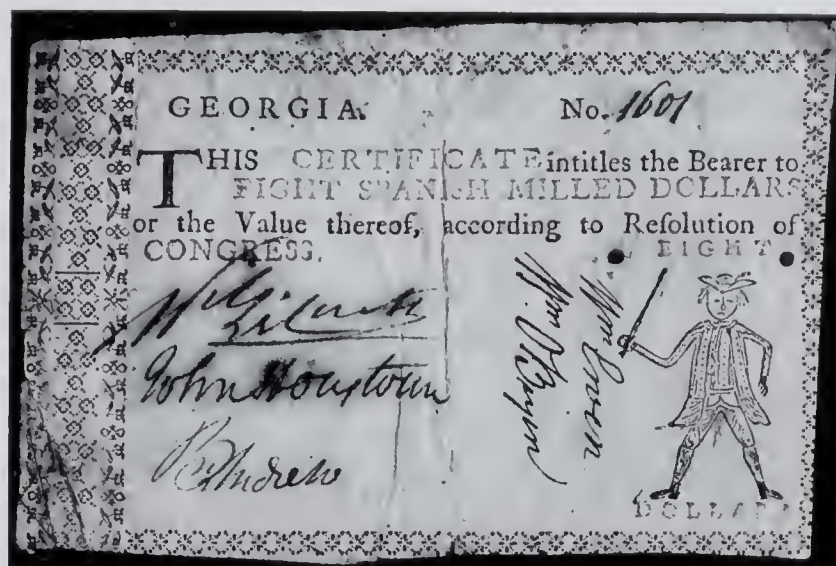 GEORGIA.
No. 1601
THIS CERTIFICATE intitles the Bearer to
EIGHT SPANISH MILLED DOLLARS
or the Value thereof, according to Reſolution of
CONGRESS.
EIGHT
John Houstoun
Andrew
Wm Ewen
Wm OBryen
DOLLARS